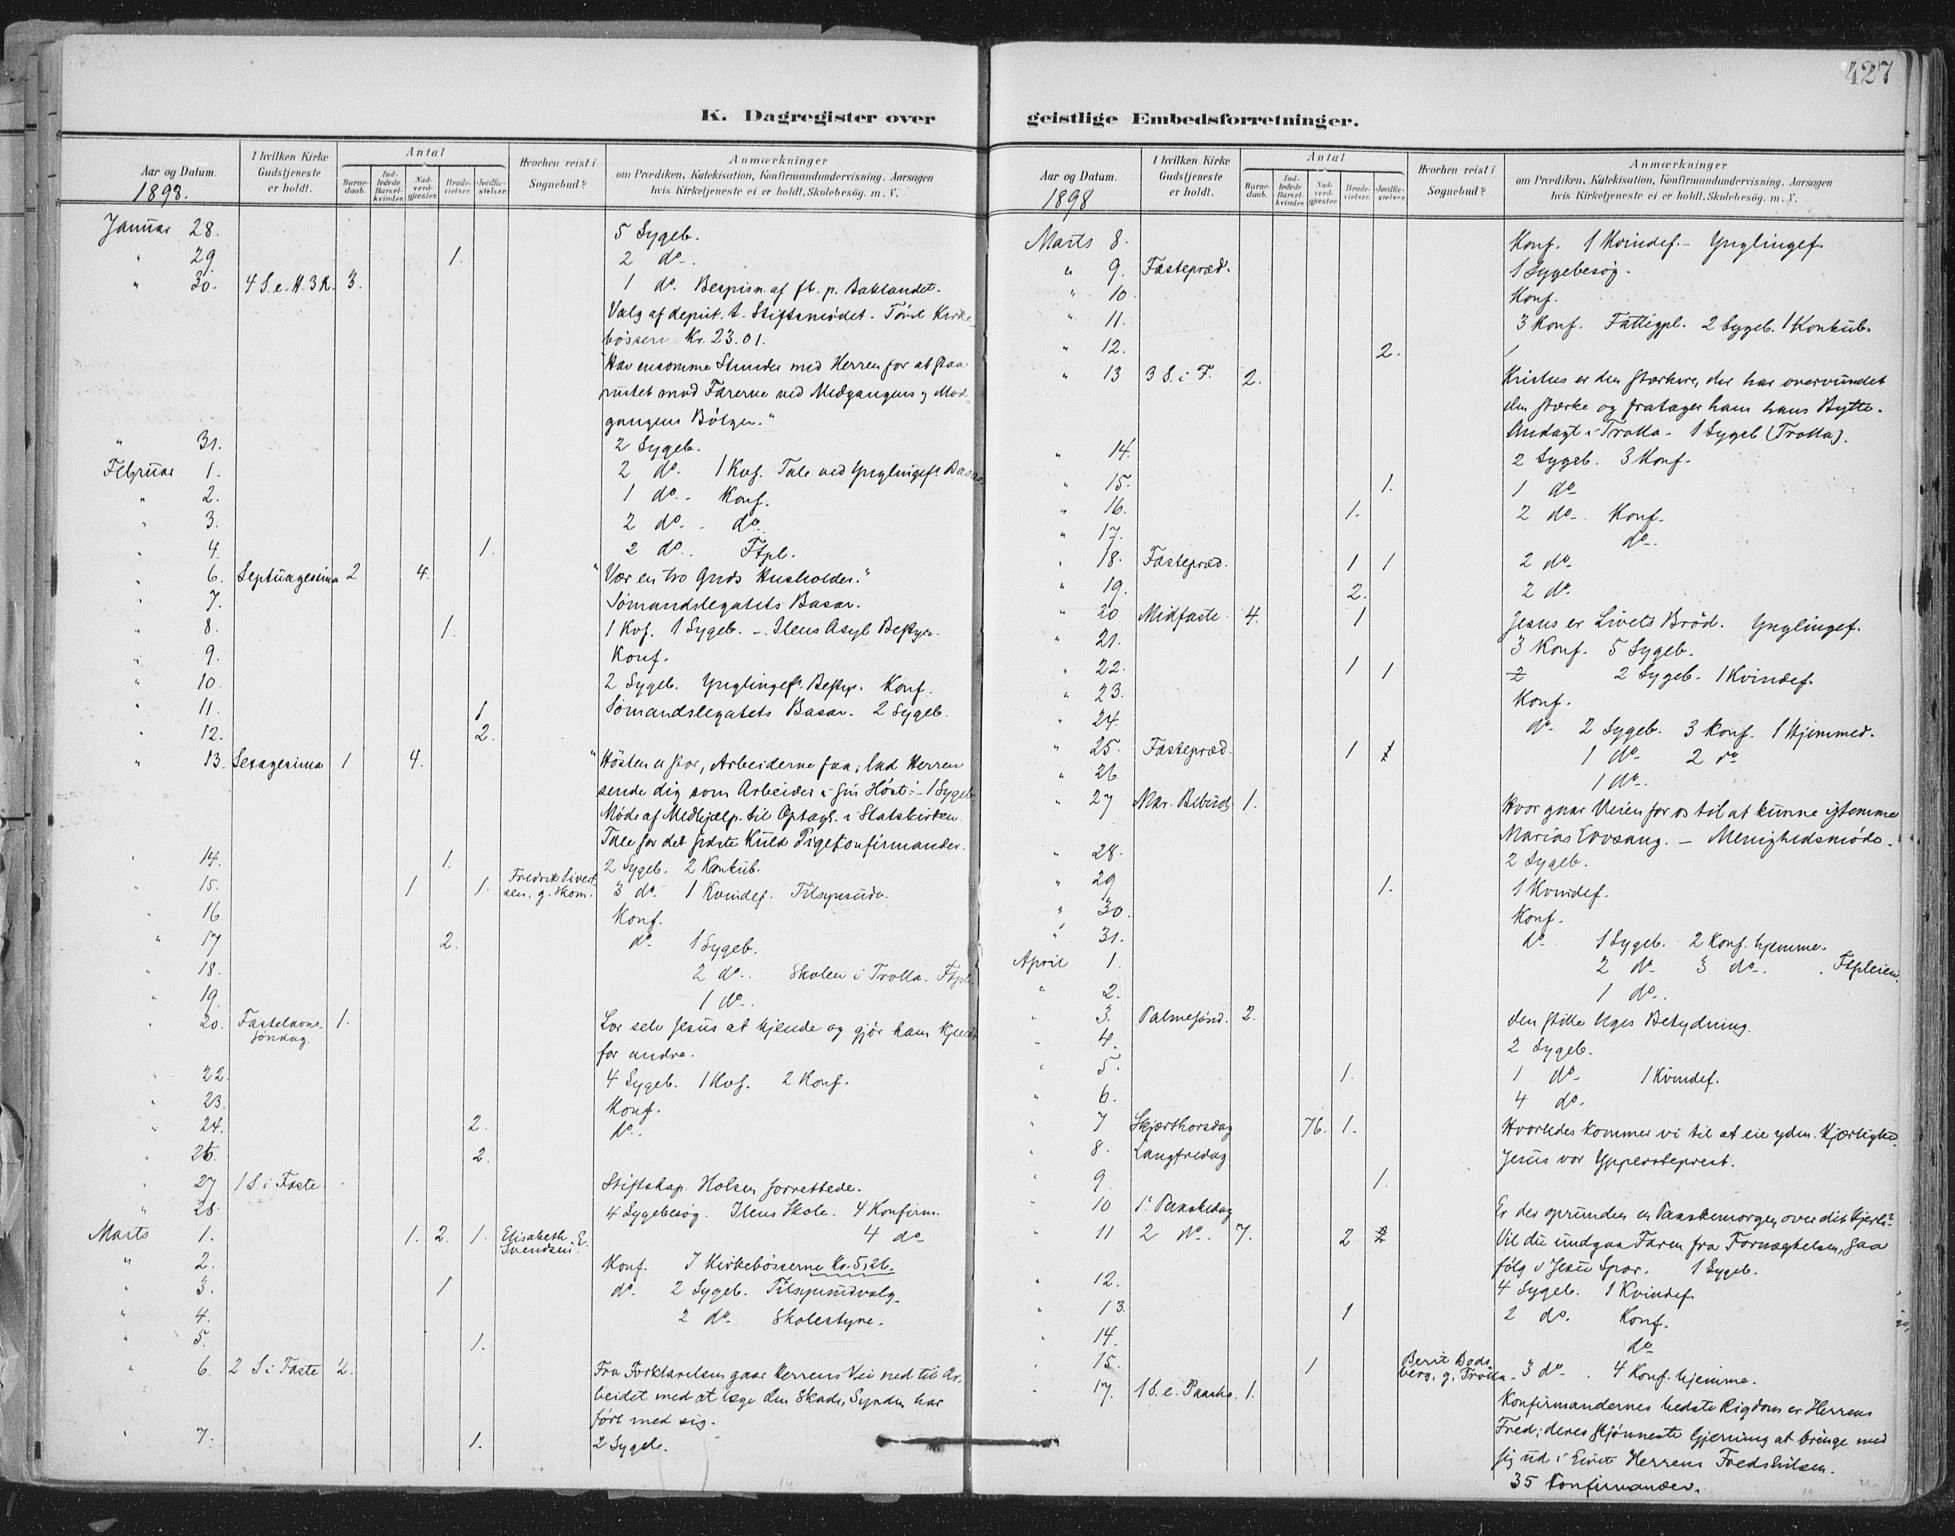 427
K. Dagregister over
Aar og Datum.
1898.
I hvilken Kirke Gudstjeneste er holdt.
Antal
Barnedaab.
Indledede Barselkvinder.
Nadverdgjester.
Brudevielser.
Jordfæstelser.
Hvorhen reist i Sognebud?
Anmærkninger
om Prædiken, Katekisation, Konfirmandundervisning. Aarsagen
hvis Kirketjeneste ei er holdt, Skolebesög. m. V.
Januar 28. 5 Sygeb.
" 29 1. 2 do.
" 30. 4 S. e. H. 3 K. 3. 1 do. Bespisn. af ft. p. Baklandet.
Valg af deput. t. Stiftsmödet. I
bössen Kr. 23.01.
"Hav ensomme Stunder med Herren for at staa
rustet mod Farerne ved Medgangens og Mod-
gangens Bölger."
" 31. 2 Sygeb.
Februar 1. 2 do. 1 Kvf. Tale ved Ynglingef. Basar
" 2. 1 do. Konf.
" 3. 2 do. do.
" 4. 1. 2 do. Ftpl.
" 6. Septuagesima 2 4. "Vær en tro Guds Husholder."
" 7. Sömandslegatets Basar.
" 8. 1. 1 Kvf. 1 Sygeb. - Ilens Asyl Bestyr.
" 9. Konf.
" 10. 2 Sygeb. Ynglingef. Bestyr. Konf.
" 11. 1 Sömandslegatets Basar. 2 Sygeb.
" 12. 2.
" 13. Sexagesima 1 4. "Hösten er stor, Arbeiderne faa; lad Herren
sende dig som Arbeider i sin Höst. - 1 Sygeb.
Möde af Medhjælp. til Optagt. i Statskirken.
Tale for det förste Kuld Pigekonfirmander.
" 14. 1. 2 Sygeb. 2 Konkub.
" 15. 1 1. Fredrik Sivert-
sen, g. Skom. 3 do. 1 Kvindef. Tilsynsudv.
" 16 Konf.
" 17 2. do. 1 Sygeb.
" 18. 2 do. Skolen i Trolla. Ftpl.
" 19. 1 do.
" 20. Fastelavns-
söndag. 1. Lær selv Jesus at kjende og gjör ham kjendt
for andre.
" 22. 4 Sygeb. 1 Kvf. 2 Konf.
" 23. Konf.
" 24. 2. do.
" 26. 2.
" 27 1 S. i Faste Stiftskap. Holsen forrettede.
" 28. 4 Sygebesög. Ilens Skole. 4 Konfirm.
Marts 1. 1. 2. 1. Elisabeth E.
Svendsen 4 do
" 2. Konf. I Kirkebösserne Kr. 5,26.
" 3. 1 do. 2 Sygeb. Tilsynsudvalg
" 4. 2 do. Skolestyre.
" 5. 1.
" 6. 2 S. i Faste 2. Fra Forklarelsen gaar Herrens Vei ned til Ar-
beidet med at læge den Skade, Synden har
fört med sig.
" 7. 1. 2 Sygeb.
geistlige Embedsforretninger.
Aar og Datum.
1898
I hvilken Kirke Gudstjeneste er holdt.
Antal
Barnedaab.
Indledede Barselkvinder.
Nadverdgjester.
Brudevielser.
Jordfæstelser.
Hvorhen reist i Sognebud?
Anmærkninger
om Prædiken, Katekisation, Konfirmandundervisning. Aarsagen
hvis Kirketjeneste ei er holdt, Skolebesög. m. V.
Marts 8. Konf. 1 Kvindef. - Ynglingef.
" 9. Fastepræd. 1 Sygebesög.
" 10. Konf.
" 11. 3 Konf. Fattigpl. 2 Sygeb. 1 Konkub.
" 12. 2.
" 13 3 S. i F. 2. Kristus er den stærkere, der har overvundet
den stærke og fratager ham hans Bytte.
Andagt i Trolla. 1 Sygeb (Trolla).
" 14. 2 Sygeb. 3 Konf.
" 15. 1. 1 do
" 16. 1. 2 do. Konf.
" 17. do.
" 18. Fastepræd. 1 1 2 do.
" 19. 2. 2 do.
" 20 Midfaste. 4. 1 Jesus er Livets Bröd. Ynglingef.
" 21. 3 Konf. 5 Sygeb.
" 22. 1 1 2 Sygeb. 1 Kvindef.
" 23. Konf.
" 24. do. 2 Sygeb. 3 Konf. 1 Hjemmed.
" 25. Fastepræd. 1 1 do. 2 do
" 26 1 do.
" 27 Mar. Bebud. 1. Hvor gaar Veien for os til at kunne istemme
Marias Lovsang. - Menighedsmöde.
" 28. 2 Sygeb.
" 29 1. 1 Kvindef.
" 30. Konf.
" 31. do 1 Sygeb. 2 Konf. hjemme.
April 1. 2 do 3 do. Ftpleien
" 2. 1 do.
" 3. Palmesönd. 2. Den stille Uges Betydning.
" 4. 2 Sygeb.
" 5. 1. 1 do 1 Kvindef.
" 6. 4 do.
" 7 Skjærthorsdag 76. 1. Hvorledes kommer vi til at eie ydm. Kjærlighed.
" 8. Langfredag Jesus vor Ypperstepræst.
" 9. 1.
" 10 1. Paaskedag Er der oprunden en Paaskemorgen over dit
" 11 2 do. 7. 2 Vil du undgaa Faren fra Fornægtelsen, saa
fölg i Jesu Spor. 1 Sygeb.
" 12. 4 Sygeb. 1 Kvindef.
" 13. 1 2 do. Konf.
" 14. do
" 15. 1 Berit Bods-
berg, g. Trolla 3 do. 4 Konf. hjemme.
" 17. 1 S. e. Paaske. 1. Konfirmandernes bedste Rigdom er Herrens
Fred; deres skjönneste Gjerning at bringe med
sig ud i Livet Herrens Fredshilsen.
35 Konfirmander.